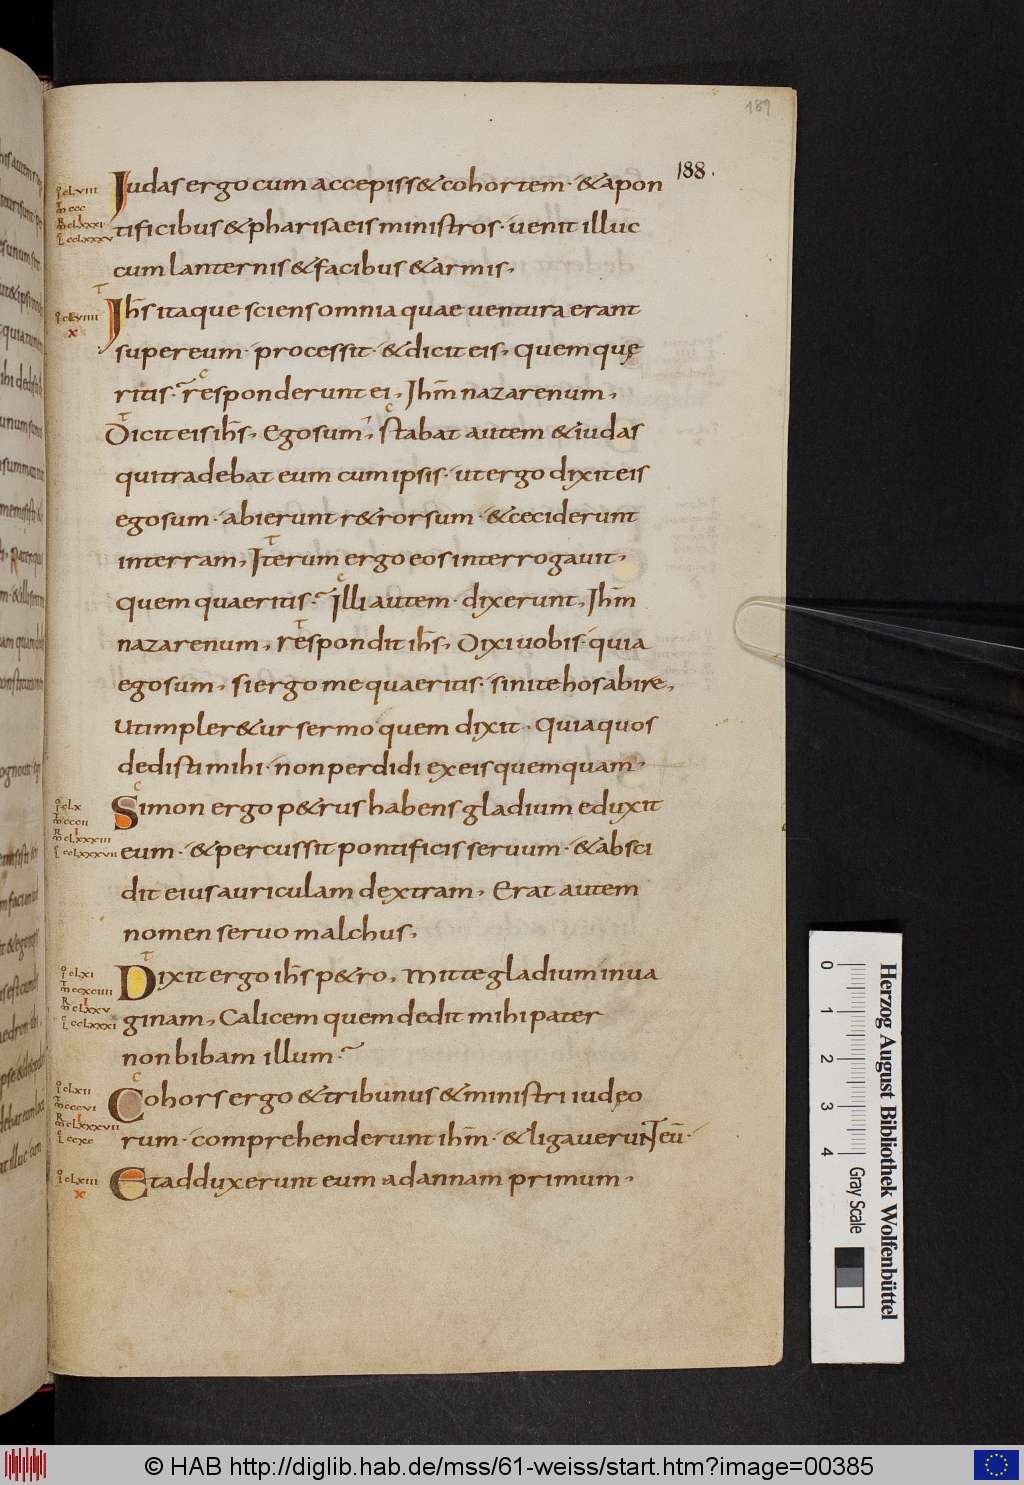 189
188.
Judas ergo cum accepiss& cohortem· & a pon
tificibus & pharisaeis ministros· uenit illuc
cum lanternis & facibus & armis,
Jhs itaque sciens omnia quae uentura erant
super eum· processit· & dicit eis, quem quę
ritis· responderunt ei, Jhm nazarenum,
Dicit eis ihs, Ego sum, stabat autem & iudas
qui tradebat eum cum ipsis· ut ergo dixit eis
ego sum· abierunt r&rorsum· & ceciderunt
in terram, Iterum ergo eos interrogauit,
quem quaeritis· Illi autem· dixerunt, Jhm
nazarenum, respondit ihs, Dixi uobis· quia
ego sum, si ergo me quaeritis· sinite hos abire,
Utimpler&ur sermo quem dixit· Quia quos
dedisti mihi· non perdidi ex eis quemquam,
clx
Simon ergo p&rus habens gladium eduxit
eum· & percussit pontificis seruum· & absci
dit eius auriculam dextram, Erat autem
nomen seruo malchus,
clxi
Dixit ergo ihs p&ro, mitte gladium in ua
ginam, Calicem quem dedit mihi pater
non bibam illum·
clxii
Cohors ergo & tribunus & ministri iudęo
rum· comprehenderunt ihm· & ligauerunt eū·
clxiii
Et adduxerunt eum ad annam primum,
0 1 2 3 4
Gray Scale
Herzog August Bibliothek Wolfenbüttel
© HAB http://diglib.hab.de/mss/61-weiss/start.htm?image=00385